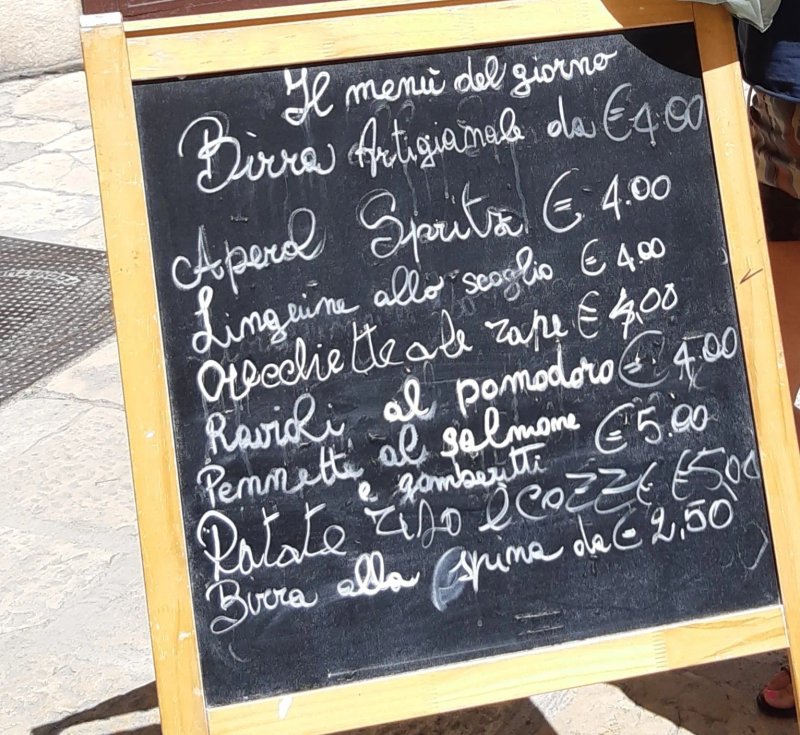 Il menù del giorno
Birra Artigianale da €4.00
Aperol Spritz € 4.00
Linguine allo scoglio € 4.00
Orecchiette ale rape € 4,00
Ravioli al pomodoro € 4.00
Pennette al salmone € 5.00
e gamberitti
Patate riso e cozze €5,00
Birra alla spina da € 2,50